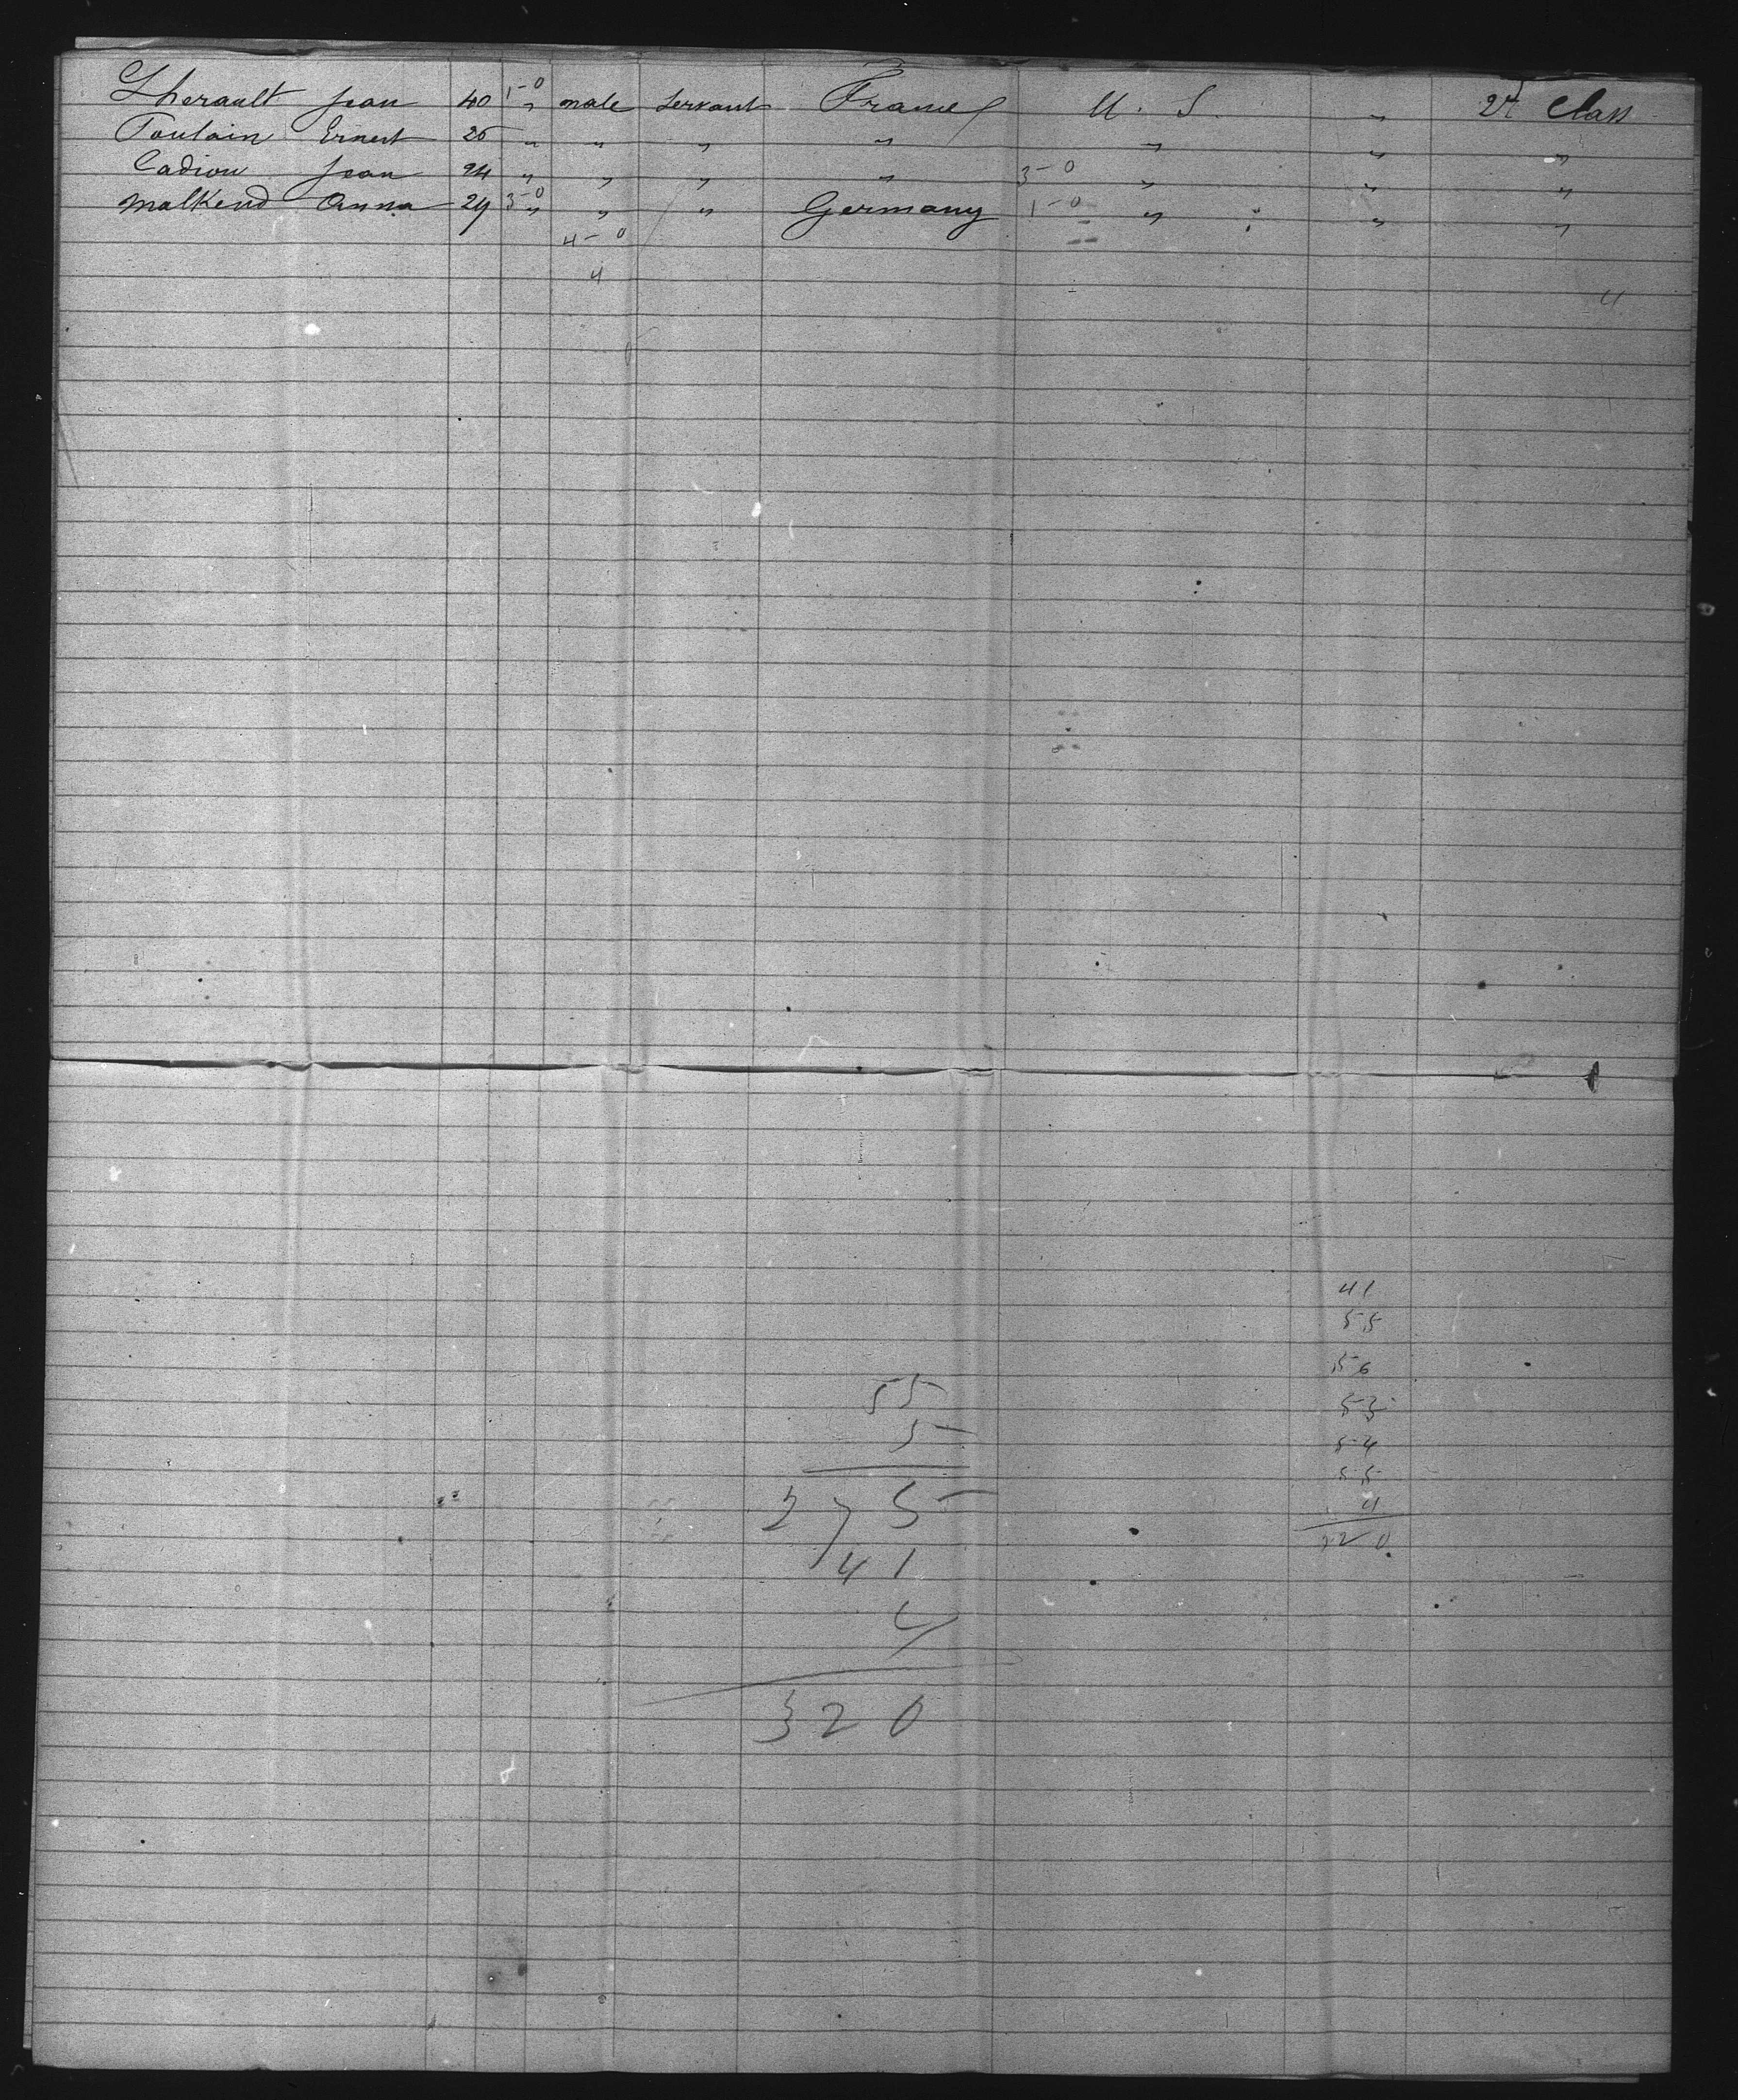 Lherault Jean 40 1-0 " male servant France U. S. " 2d Class
Poulain Ernest 26 " " " " " " "
Cadiou Jean 24 " " " " 3-0 " " "
Malkend Anna 29 3-0 " " " Germany 1-0 " " "
4-0
4
4
41
55
56
53
54
55
4
320
55
5
275
41
4
320